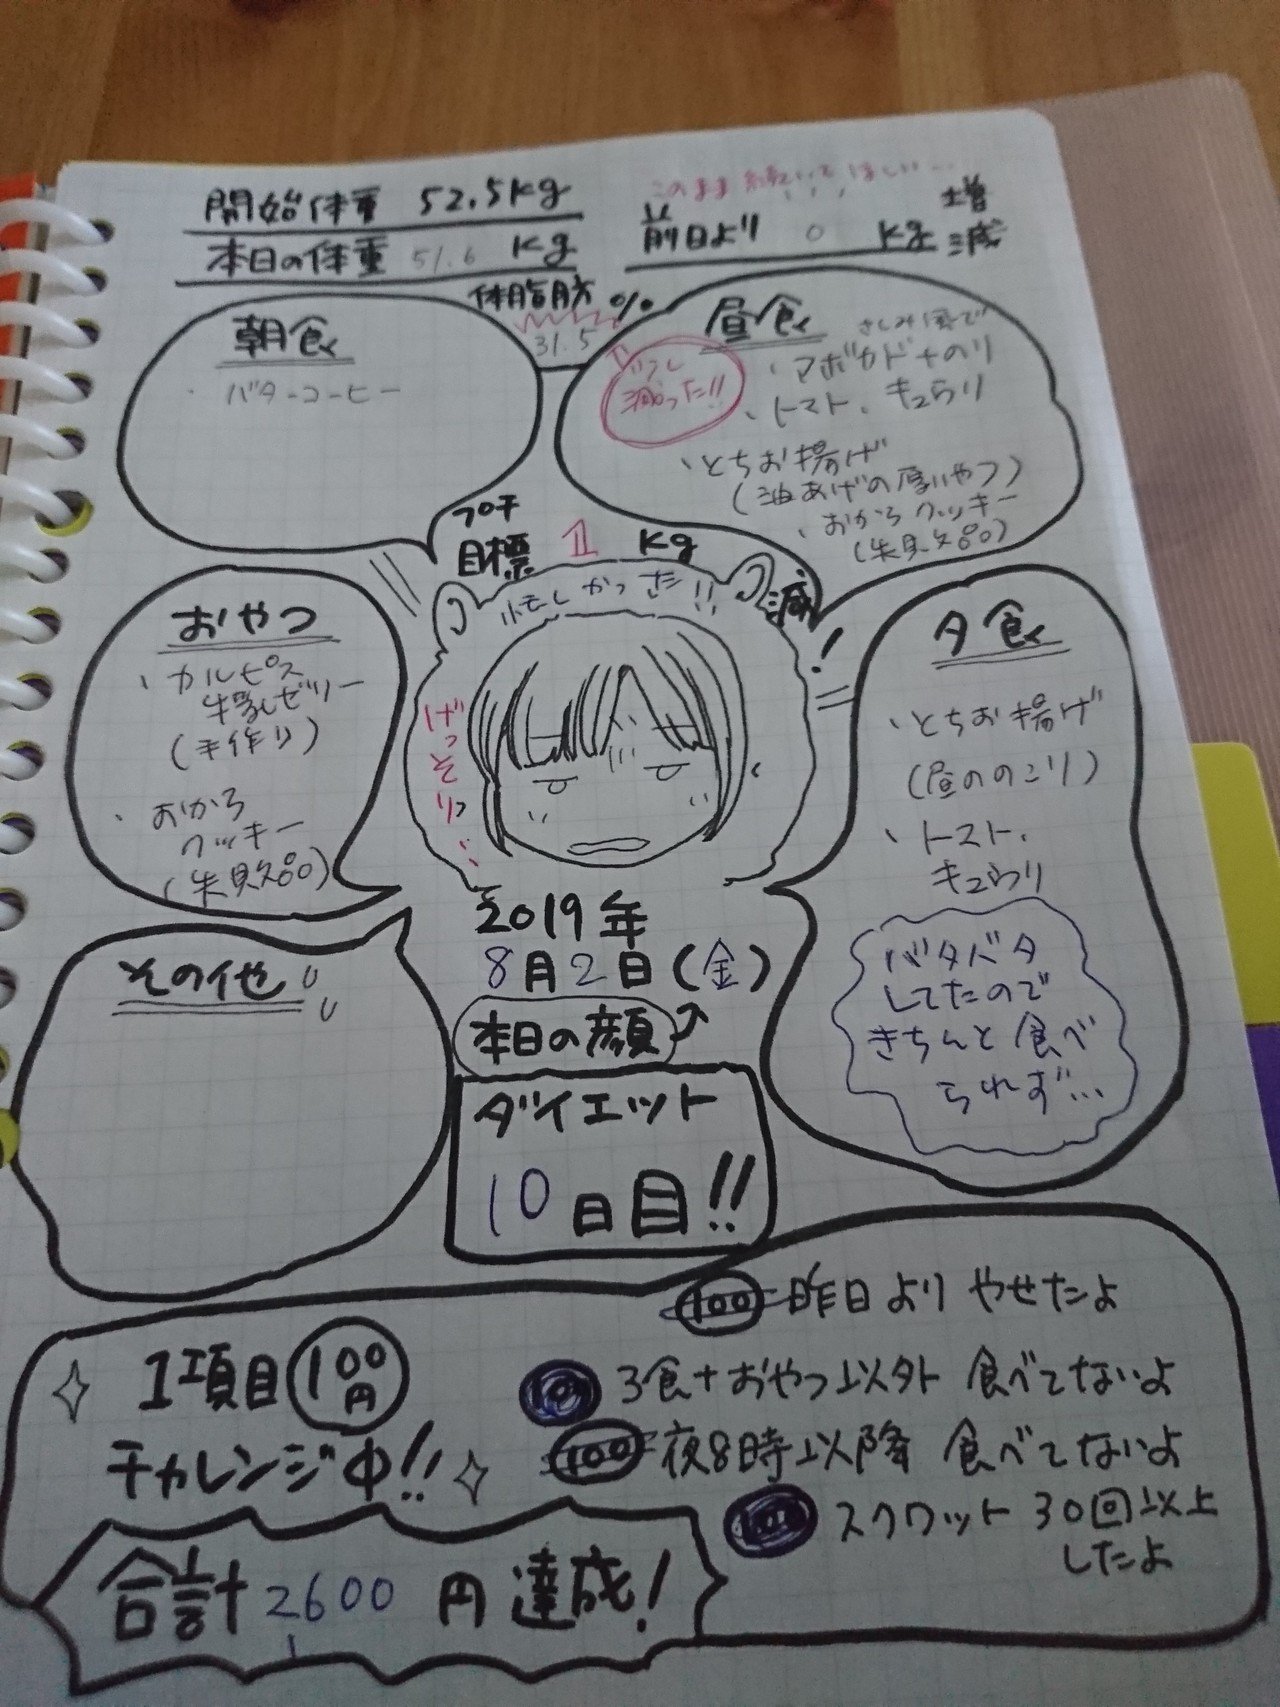 開始体重 52.5kg
本日の体重 51.6 kg
このまま続いてほしい…
前日より 0 kg 増
減
体脂肪 %
31.5
少し
減った!!
朝食
・バターコーヒー
昼食
さしみ風で
・アボカド+のり
・トマト、キュウリ
・とちお揚げ
(油あげの厚いやつ)
・おからクッキー
(失敗品)
プチ
目標 1 kg
減!
おやつ
・カルピス
牛乳ゼリー
(手作り)
・おから
クッキー
(失敗品)
忙しかった!!
げっそりっ…
夕食
・とちお揚げ
(昼ののこり)
・トマト、
キュウリ
バタバタ
してたので
きちんと食べ
られず…
その他
2019年
8月2日(金)
本日の顔
ダイエット
10日目!!
1項目100円
チャレンジ中!!
100 昨日より やせたよ
100 3食+おやつ以外 食べてないよ
100 夜8時以降 食べてないよ
100 スクワット 30回以上
したよ
合計 2600 円 達成!